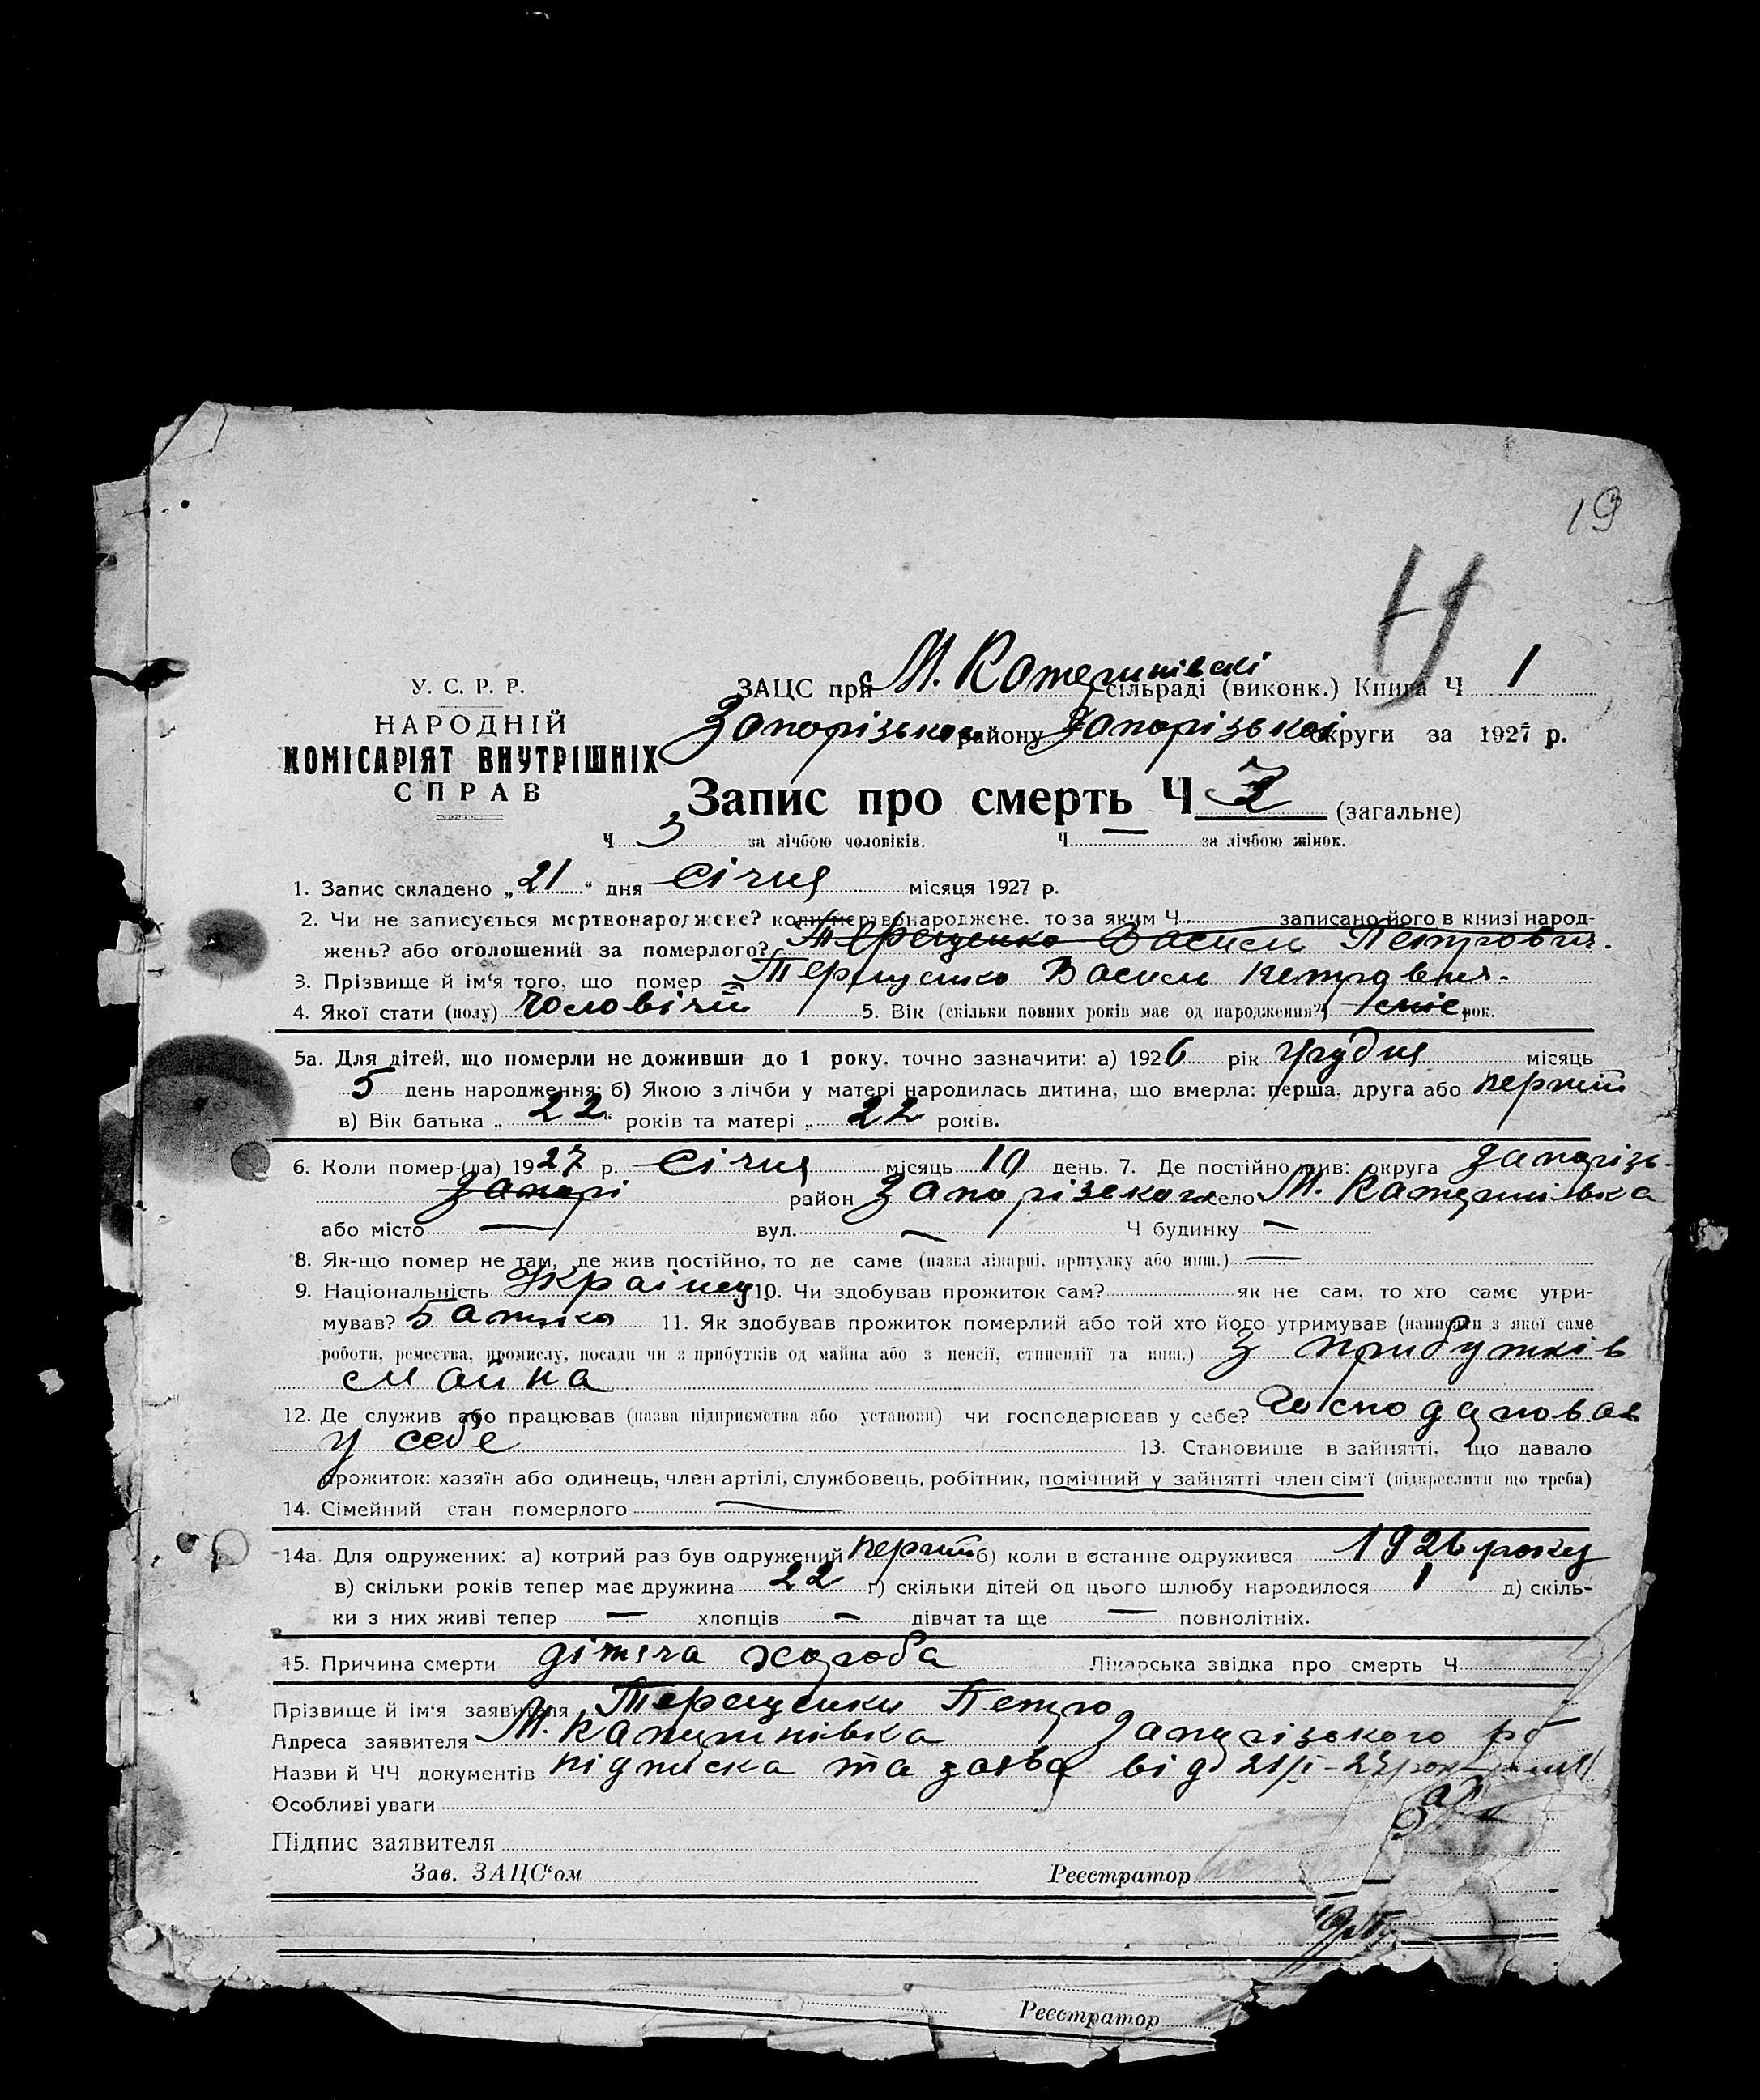 19
Ч
У. С. Р. Р.
НАРОДНІЙ
КОМІСАРІЯТ ВНУТРІШНІХ
СПРАВ
ЗАЦС при М. Катеринівскі сільраді (виконк.) Книга Ч 1
Запорізького району Запорізької округи за 1927 р.
Запис про смерть Ч (загальне)
Ч 3 за лічбою чоловіків. Ч — за лічбою жінок.
1. Запис складено „21“ дня Січня місяця 1927 р.
2. Чи не записується мертвонароджене? коли мертвонароджене, то за яким Ч записано його в книзі народ-
жень? або оголошений за померлого? Терещенко Василь Петрович.
3. Прізвище й ім'я того, що помер Терещенко Василь Петрович.
4. Якої стати (полу) Чоловічій 5. Вік (скільки повних років має од народження?) рок.
5а. Для дітей, що померли не доживши до 1 року, точно зазначити: а) 1926 рік грудня місяць
5 день народження; б) Якою з лічби у матері народилась дитина, що вмерла: перша, друга або перший
в) Вік батька „22“ років та матері „22 років.
6. Коли помер-(ла) 1927 р. Січня місяць день. 7. Де постійно жив: округа Запорізь-
Запорі район Запорізького село М. Катеринівка
або місто — вул. — Ч будинку —
8. Як-що помер не там, де жив постійно, то де саме (назва лікарні, притулку або инш.) —
9. Національність Украінец 10. Чи здобував прожиток сам? як не сам, то хто саме утри-
мував? батько 11. Як здобував прожиток померлий або той хто його утримував (написати з якої саме
роботи, ремества, промислу, посади чи з прибутків од майна або з пенсії, стипендії та инш.) З прибутків
майна
12. Де служив або працював (назва підприємства або установи) чи господарював у себе? Господаровав
у себе 13. Становище в зайнятті, що давало
прожиток: хазяїн або одинець, член артілі, службовець, робітник, помічний у зайнятті член сім'ї (підкреслити що треба)
14. Сімейний стан померлого —
14а. Для одружених: а) котрий раз був одружений перший б) коли в останнє одружився 1926 року
в) скільки років тепер має дружина 22 г) скільки дітей од цього шлюбу народилося 1 д) скіль-
ки з них живі тепер — хлопців — дівчат та ще — повнолітніх.
15. Причина смерти дітяча хороба Лікарська звідка про смерть Ч
Прізвище й ім'я заявителя Терещенко Петро
Адреса заявителя М. Катеринівка Запорізького
Назви й ЧЧ документів підписка та заява від 21/І-27
Особливі уваги
Підпис заявителя
Зав. ЗАЦС'ом Реєстратор
Реєстратор